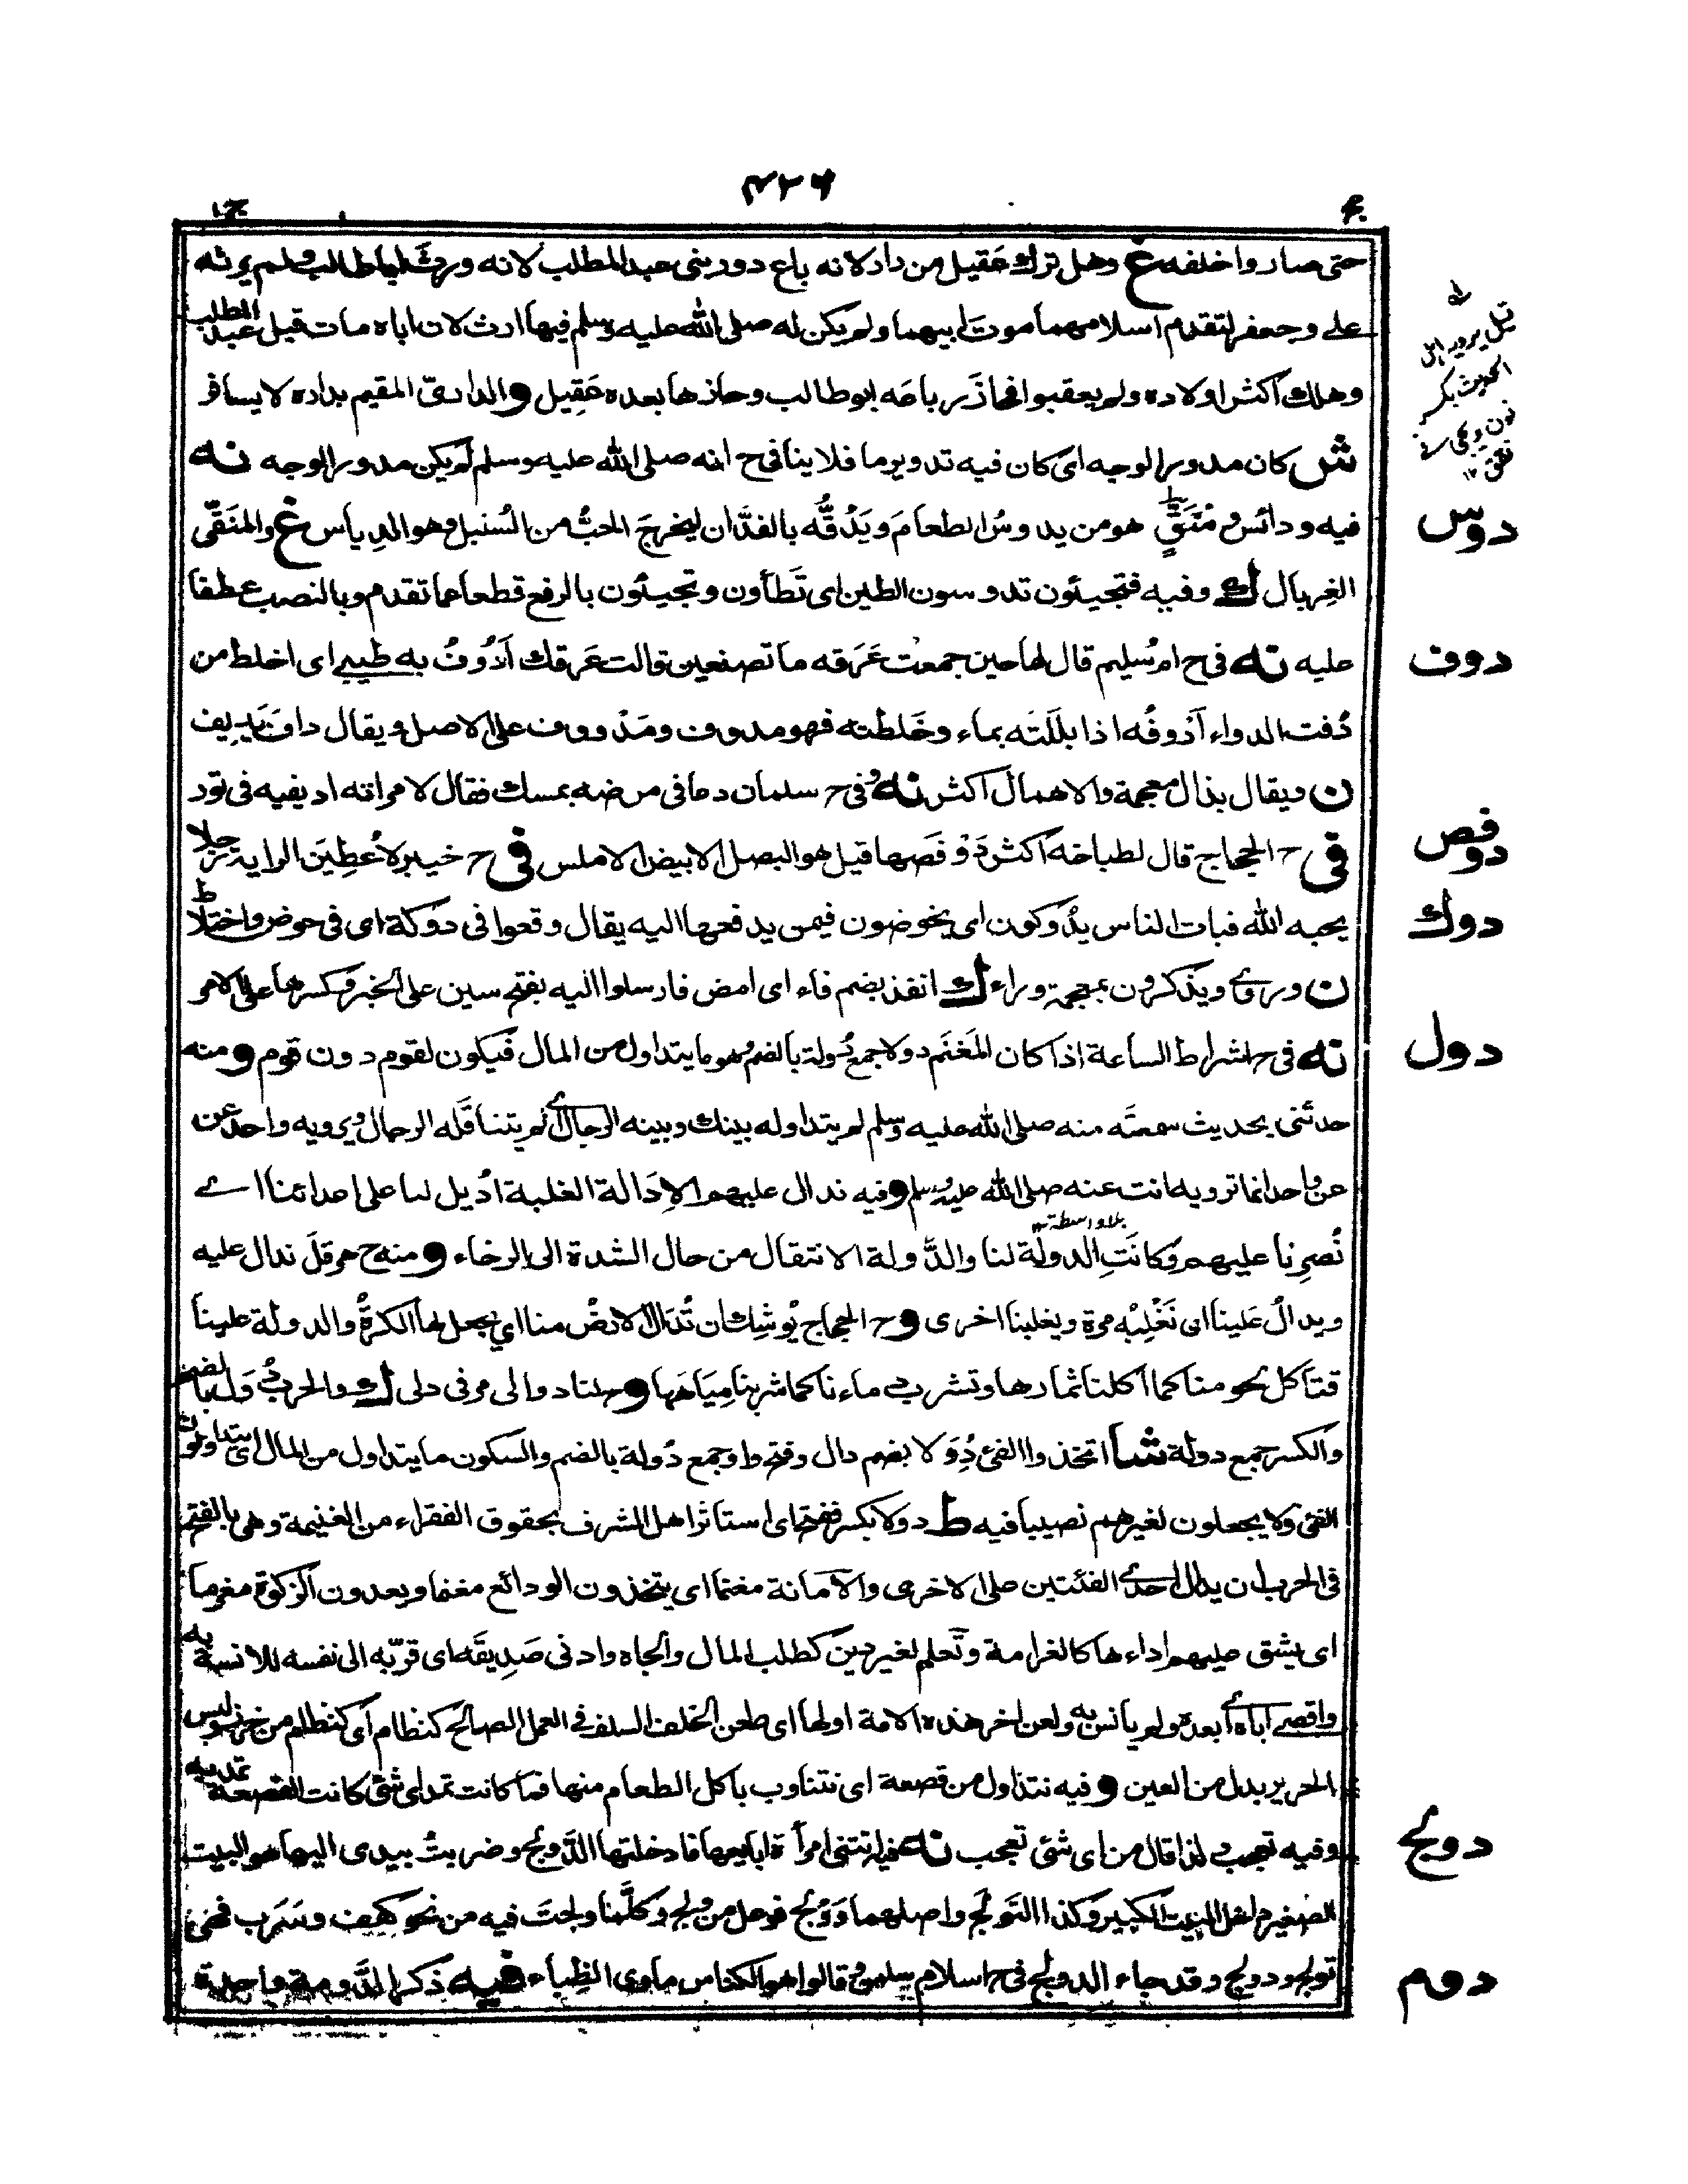 ٤٢٦
حتى صار واخلفه غ وهل ترك عقيل من دار لانه باع دور بنى عبد المطلب لانه ورث اباطالب ولم يرثه
على وجعفر لتقدم اسلامهما موت ابيهما ولم يكن له صلى الله عليه وسلم فيها ارث لان اباه مات قبل عبد المطلب
وهلك اكثر اولاده ولم يعقبوا فحاز رباعه ابو طالب وحازها بعده عقيل و الدارىّ المقيم بداره لا يسافر
ش كان مدور الوجه اى كان فيه تدوير ما فلا ينافى ح انه صلى الله عليه وسلم لم يكن مدور الوجه نه
دوس
فيه ودائس و مُنَقٍّ هو من يدوسُ الطعامَ ويَدُقُّه بالفدّان ليخرجَ الحبُّ من السُنبل وهو الدِياس غ والمنَقّى
الغِربال ك وفيه فتجيئون تدوسون الطين اى تَطَأون وتجيئون بالرفع قطعا عما تقدم وبالنصب عطفا
دوف
عليه نه فى ح ام سُليم قال لها حين جمعت عَرَقه ما تصنعين قالت عَرَقك اَدُوفُ به طيبى اى اخلط من
دُفت الدواء اَدُوفُه اذا بللَتَه بماء وخَلطته فهو مدوف ومَدْووف على الاصل ويقال داف يَدِيف
ن ويقال بذال معجمة والاهمال اكثر نه وفى ح سلمان دعا فى مرضه بمسك فقال لامراته اديفيه فى تور
دوفص
فى ح الحجاج قال لطباخه اكثر دَوْفَصها قيل هو البصل الابيض الاملس فى ح خيبر لاُعطِيَن الراية رجلا
دوك
يحبه الله فبات الناس يدُوكون اى يخوضون فيمن يدفعها اليه يقال وقعوا فى دَوكة اى فى خوض واختلاط
ن وروى ويذكرون بمعجمة وراء ك انفذ بضم فاء اى امض فارسلوا اليه بفتح سين على الخبر وكسرها على الامر
دول
نه فى ح اشراط الساعة اذا كان المَغنَم دولا جمع دُولة بالضم وهو ما يتداول من المال فيكون لقوم دون قوم و منه
حدثنى بحديث سمعتَه منه صلى الله عليه وسلم لم يتداوله بينك وبينه الرجال اى لم يتناقله الرجال ويرويه واحد عن
عن واحد انما ترويه انت عنه صلى الله عليه وسلم و فيه ندال عليهم الاِدَالة الغلبة اُديل لنا على اعدائنا اى
بلا واسطة ١٢
نُصِرنا عليهم وكانَتِ الدولة لنا والدَّولة الانتقال من حال الشدة الى الرخاء و منه ح هرقل ندال عليه
ويدالُ عَلينا اى نَغْلِبْه مرة ويغلبنا اخرى و ح الحجاج يُوشِك ان تُدَالَ الارضُ منا اى يجعل لها الكرةُ والدولة علينا
فتاكل لحومنا كما اكلنا ثمارها وتشرب دماءنا كما شربنا مِيَاهَها و ح لنا دوالى مر فى دلى ك والحرب دُوَل بالضم
والكسر جمع دولة شا اتخذوا الفئ دُوَلا بضم دال وفتح واو جمع دُولة بالضم والسكون ما يتداول من المال اى يتداولون
الفئ ولا يجعلون لغيرهم نصيبا فيه ط دولا بكسر ففتح اى استاثر اهل الشرف بحقوق الفقراء من الغنيمة وهى بالفتح
فى الحرب ان يدال احدى الفئتين على الاخرى والامانة مغنما اى يتخذون الودائع مغنما ويعدون الزكوة مغرما
اى يشق عليهم اداءها كالغرامة وتَعلم لغير دين كطلب المال والجاه وادنى صَدِيقَه اى قرّبه الى نفسه للانسة به
واقصى اباه اى ابعده ولم يانس به ولعن اخر هذه الامة اولها اى طعن الخلف السلف فى العمل الصالح كنظام اى كنظام من خرز ولبس
الحرير بدل من العين و فيه نتداول من قصعة اى نتناوب باكل الطعام منها فما كانت تمد اى شئ كانت القصعة تمد به
دولج
وفيه تعجب ولذا قال من اى شئ تعجب نه فيه اتتنى امرأة ابايعها فادخلتها الدَّولج وضربتُ بيدى اليها هو البيت
الصغير داخل البيت الكبير وكذا التَولَج واصلهما وَوْلَج فوعل من ولج وكلّما ولجتَ فيه من نحو كهف وسَرَب فهو
دوم
تولج ودولج وقد جاء الدولج فى ح اسلام سلمان وقالوا هو الكناس ماوى الظِباء فيه ذكر الدَّومة واحدة